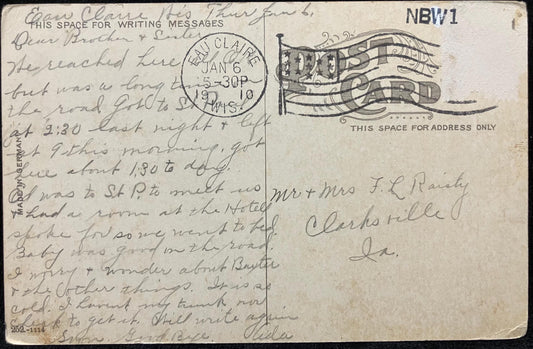 Eau Claire Wis Thur Jan 6,
THIS SPACE FOR WRITING MESSAGES
Dear Brother & Sister
We reached here
but was a long time
the road Got to St
at 2:30 last night & left
at 9 this morning, got
here about 1:30 to day.
Al was to St P. to meet us
& had a room at the Hotel
spoke for so we went to bed
Baby was good on the road.
I worry & wonder about Baxter
& the other things. It is so
cold. I havent my trunk nor
check to get it. Will write again
Soon Good Bye Aida
MADE IN GERMANY
202-1114
EAU CLAIRE
JAN 6
5-30P
19 10
WIS.
NBW1
POST
CARD
THIS SPACE FOR ADDRESS ONLY
Mr & Mrs F. L
Clarksville
Ia.